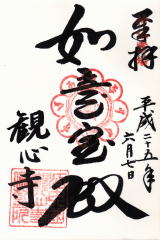 奉拝
平成二十五年
六月七日
如意宝殿
観心寺